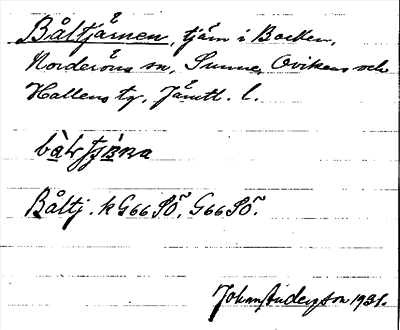 Båltjärnen, tjärn i Backen,
Norderöns sn, Sunne, Ovikens och
Hallens tg, Jämtl. l.
Båltj. k G66 SÖ, G66 SÖ.
John Andersson 1931.